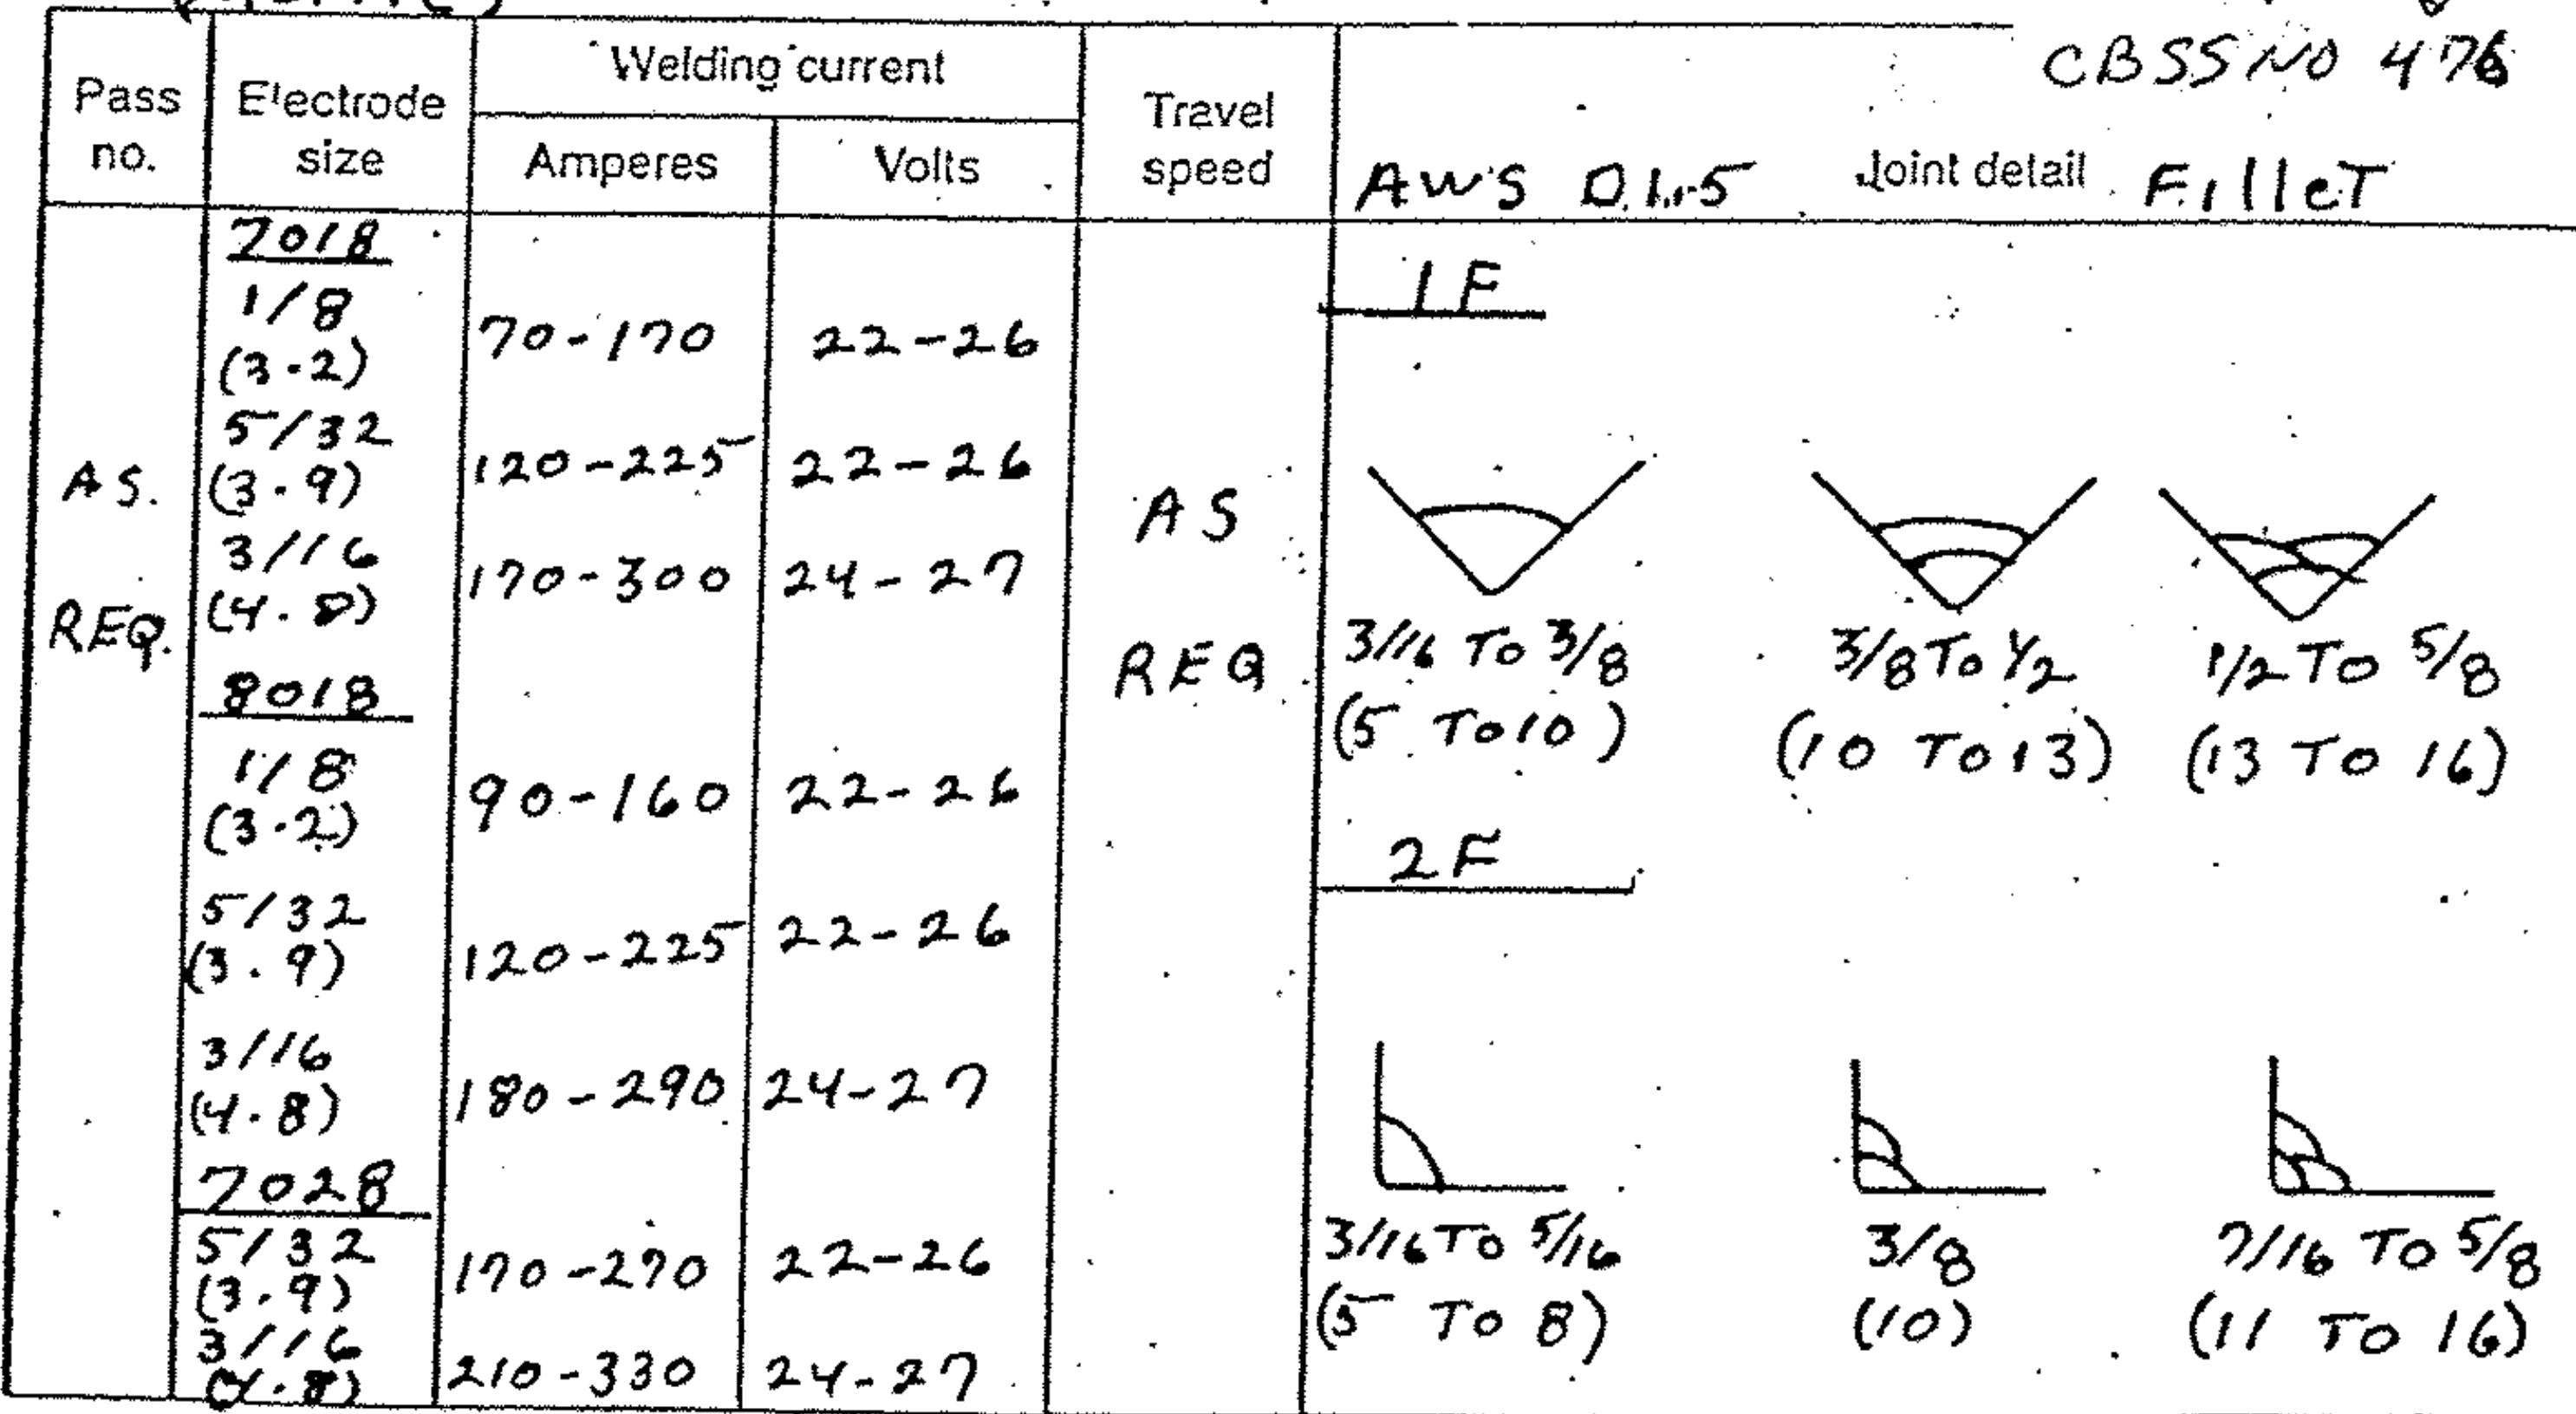 CBSS NO 476
Pass no.
Electrode size
Welding current
Amperes
Volts
Travel speed
AWS D1.5 Joint detail FilleT
7018
1/8
(3.2)
70-170 22-26
5/32
(3.9)
120-225 22-26
3/16
(4.8)
170-300 24-27
8018
1/8
(3.2)
90-160 22-26
5/32
(3.9)
120-225 22-26
3/16
(4.8)
180-290 24-27
7028
5/32
(3.9)
170-270 22-26
3/16
(4.8)
210-330 24-27
AS.
REQ.
AS
REQ
1F
3/16 To 3/8 3/8 To 1/2 1/2 To 5/8
(5 To 10) (10 To 13) (13 To 16)
2F
3/16 To 5/16 3/8 7/16 To 5/8
(5 To 8) (10) (11 To 16)